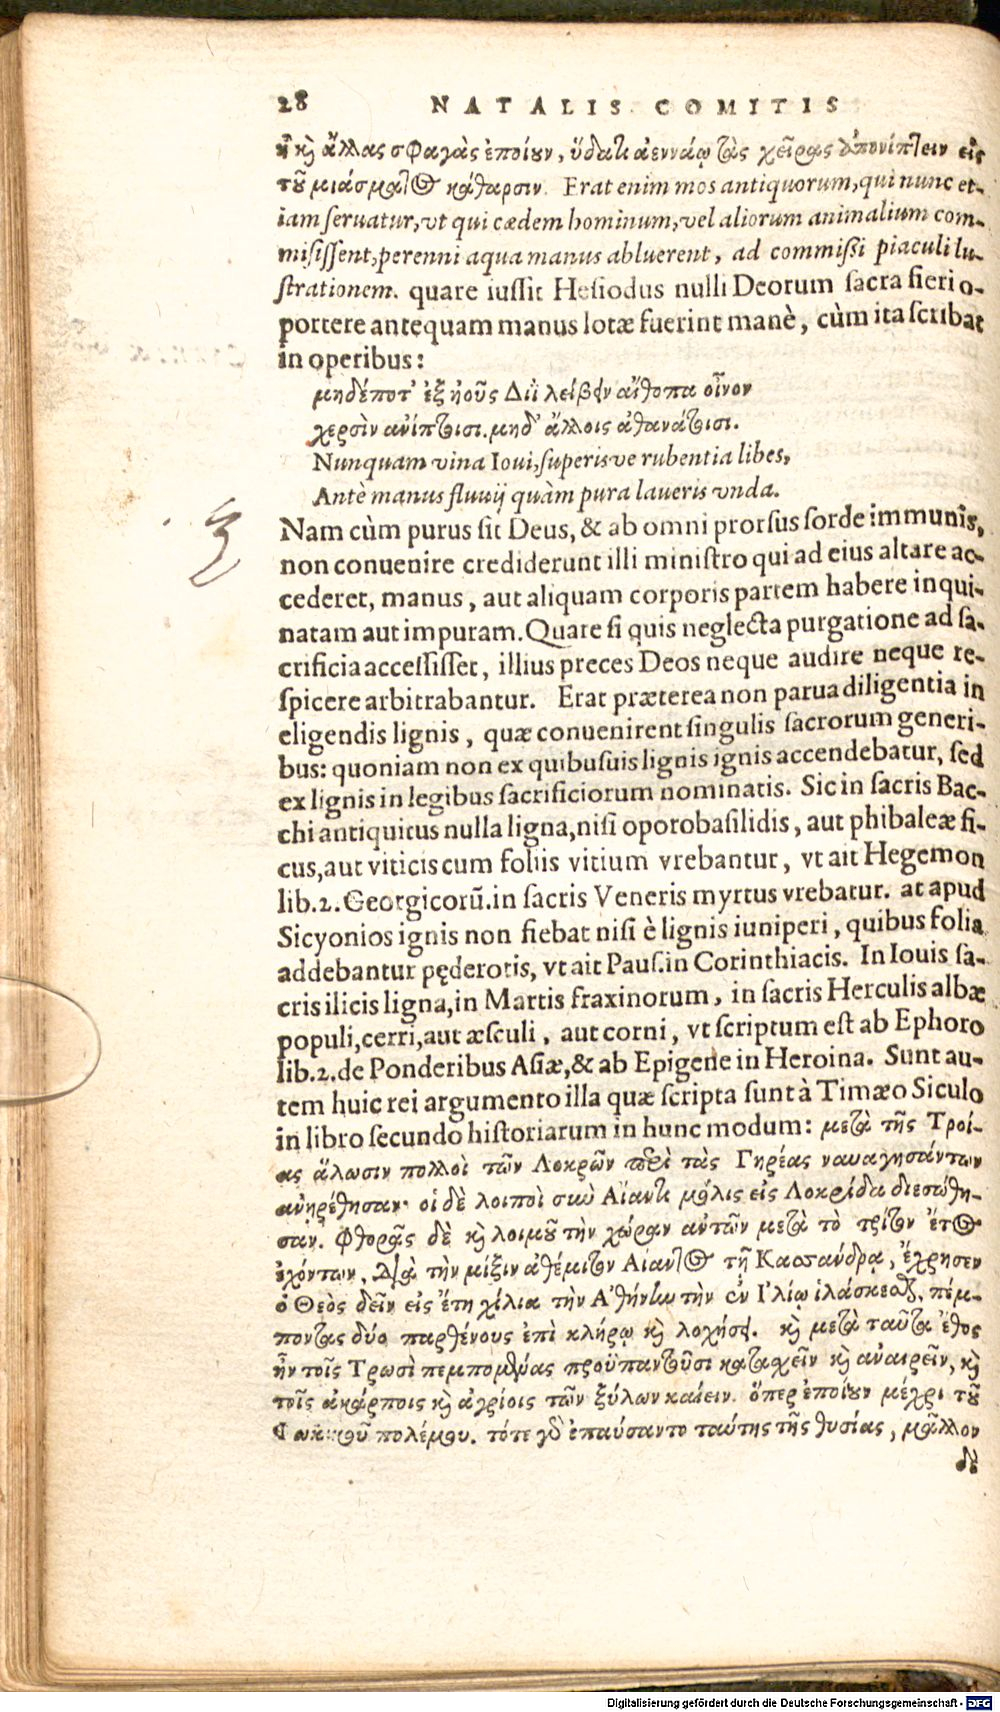 28 NATALIS COMITIS
ἢ καὶ ἄλλας σφαγὰς ἐποίουν, ὕδατι ἀεννάῳ τὰς χεῖρας ἀπονίπτειν εἰς
τοῦ μιάσματος κάθαρσιν. Erat enim mos antiquorum, qui nunc et-
iam seruatur, vt qui cædem hominum, vel aliorum animalium com-
misissent, perenni aqua manus abluerent, ad commissi piaculi lu-
strationem. quare iussit Hesiodus nulli Deorum sacra fieri o-
portere antequam manus lotæ fuerint manè, cùm ita scribat
in operibus:
μηδέποτ' ἐξ ἠοῦς Διῒ λείβειν αἴθοπα οἶνον
χερσὶν ἀνίπτοισι. μηδ' ἄλλοις ἀθανάτοισι.
Nunquam vina Ioui, superisve rubentia libes,
Antè manus fluuij quàm pura laueris vnda.
Nam cùm purus sit Deus, & ab omni prorsus sorde immunis,
non conuenire crediderunt illi ministro qui ad eius altare ac-
cederet, manus, aut aliquam corporis partem habere inqui-
natam aut impuram. Quare si quis neglecta purgatione ad sa-
crificia accessisset, illius preces Deos neque audire neque re-
spicere arbitrabantur. Erat præterea non parua diligentia in
eligendis lignis, quæ conuenirent singulis sacrorum generi-
bus: quoniam non ex quibusuis lignis ignis accendebatur, sed
ex lignis in legibus sacrificiorum nominatis. Sic in sacris Bac-
chi antiquitus nulla ligna, nisi oporobasilidis, aut phibaleæ fi-
cus, aut viticis cum foliis vitium vrebantur, vt ait Hegemon
lib. 2. Georgicorũ. in sacris Veneris myrtus vrebatur. at apud
Sicyonios ignis non fiebat nisi è lignis iuniperi, quibus folia
addebantur pęderotis, vt ait Paus. in Corinthiacis. In Iouis sa-
cris ilicis ligna, in Martis fraxinorum, in sacris Herculis albæ
populi, cerri, aut æsculi, aut corni, vt scriptum est ab Ephoro
lib. 2. de Ponderibus Asiæ, & ab Epigene in Heroina. Sunt au-
tem huic rei argumento illa quæ scripta sunt à Timæo Siculo
in libro secundo historiarum in hunc modum: μετὰ τῆς Τροί-
ας ἅλωσιν πολλοὶ τῶν Λοκρῶν περὶ τὰς Γηρέας ναυαγησάντων
ἀνῃρέθησαν· οἱ δὲ λοιποὶ σὺν Αἴαντι μόλις εἰς Λοκρίδα διεσώθη-
σαν. Φθορᾶς δὲ καὶ λοιμοῦ τὴν χώραν αὐτῶν μετὰ τὸ τρίτον ἔτος
ἐχόντων, διὰ τὴν μίξιν ἀθέμιτον Αἴαντος τῇ Κασάνδρᾳ, ἔχρησεν
ὁ Θεὸς δεῖν εἰς ἔτη χίλια τὴν Ἀθήνην τὴν ἐν Ἰλίῳ ἱλάσκεσθαι, πέμ-
ποντας δύο παρθένους ἐπὶ κλήρῳ καὶ λοχήσει. καὶ μετὰ ταῦτα ἔθος
ἦν τοῖς Τρωσὶ πεμπομένας προϋπαντοῦσι κατασχεῖν καὶ ἀναιρεῖν, καὶ
τοῖς ἀκάρποις καὶ ἀγρίοις τῶν ξύλων καίειν. ὅπερ ἐποίουν μέχρι τοῦ
πολέμου. τότε γὰρ ἐπαύσαντο ταύτης τῆς θυσίας, μᾶλλον
δὲ
Digitalisierung gefördert durch die Deutsche Forschungsgemeinschaft - DFG